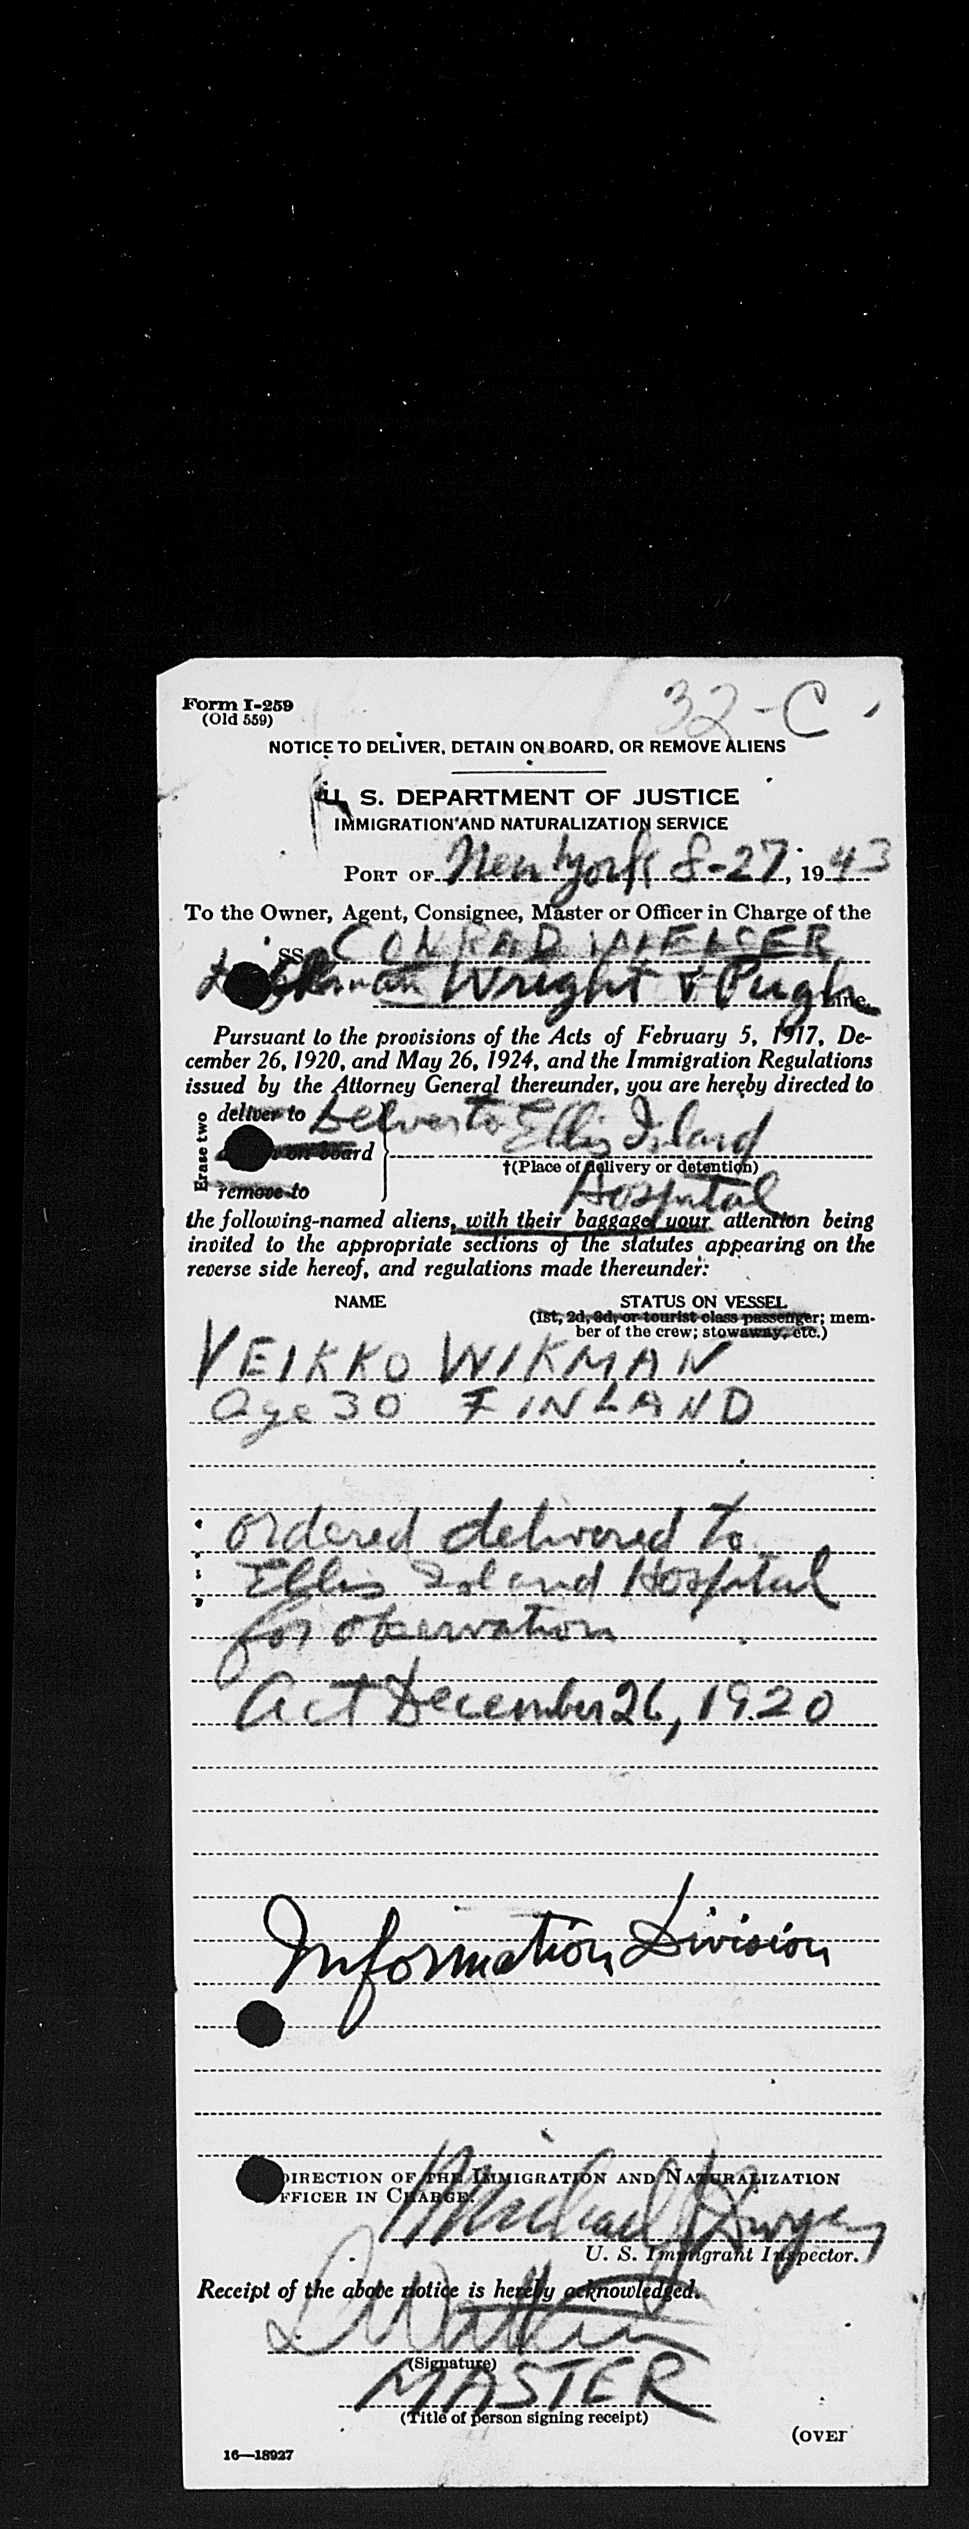 32-C
Form I-259
(Old 559)
NOTICE TO DELIVER, DETAIN ON BOARD, OR REMOVE ALIENS
U. S. DEPARTMENT OF JUSTICE
IMMIGRATION AND NATURALIZATION SERVICE
PORT OF New York 8-27, 1943
To the Owner, Agent, Consignee, Master or Officer in Charge of the
SS CONRAD WEISER
Wright & Pugh Line.
Pursuant to the provisions of the Acts of February 5, 1917, De-
cember 26, 1920, and May 26, 1924, and the Immigration Regulations
issued by the Attorney General thereunder, you are hereby directed to
Erase two
deliver to Deliver to Ellis Island
on board
†(Place of delivery or detention)
remove to Hospital
the following-named aliens, with their baggage, your attention being
invited to the appropriate sections of the statutes appearing on the
reverse side hereof, and regulations made thereunder:
NAME STATUS ON VESSEL
(1st, 2d, 3d, or tourist class passenger; mem-
ber of the crew; stowaway, etc.)
VEIKKO WIKMAN
Age 30 FINLAND
ordered delivered to
Ellis Island Hospital
for observation
Act December 26, 1920
Information Division
DIRECTION OF THE IMMIGRATION AND NATURALIZATION
OFFICER IN CHARGE:
Michael J Dwyer
U. S. Immigrant Inspector.
Receipt of the above notice is hereby acknowledged.
(Signature)
MASTER
(Title of person signing receipt)
(OVER
16—18927